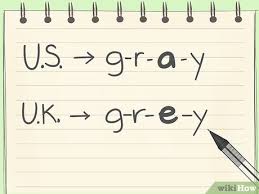 U.S. → g-r-a-y
U.K. → g-r-e-y
wikiHow